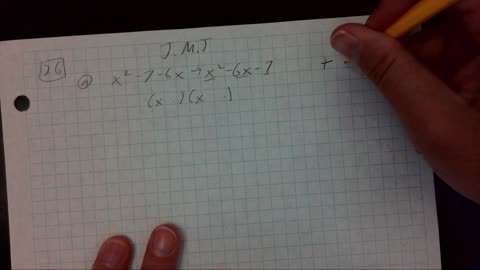 J.M.J
26
a x² -7-6x → x² -6x -7
(x )(x )
+